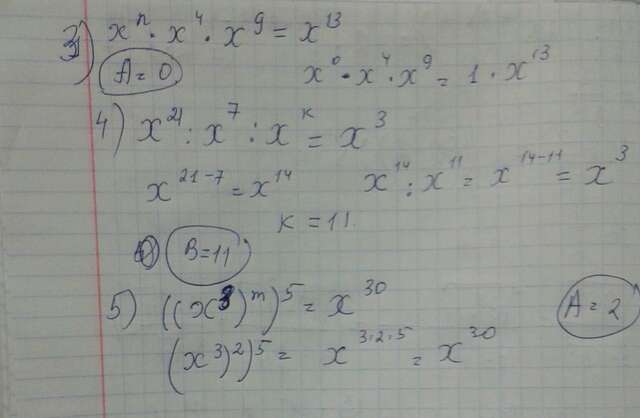 3) xⁿ · x⁴ · x⁹ = x¹³
A = 0   x⁰ · x⁴ · x⁹ = 1 · x¹³
4) x²¹ : x⁷ : xᵏ = x³
x²¹⁻⁷ = x¹⁴   x¹⁴ : x¹¹ = x¹⁴⁻¹¹ = x³
к = 11.
B = 11
5) ((x³)ᵐ)⁵ = x³⁰   A = 2
(x³)²)⁵ = x³·²·⁵ = x³⁰